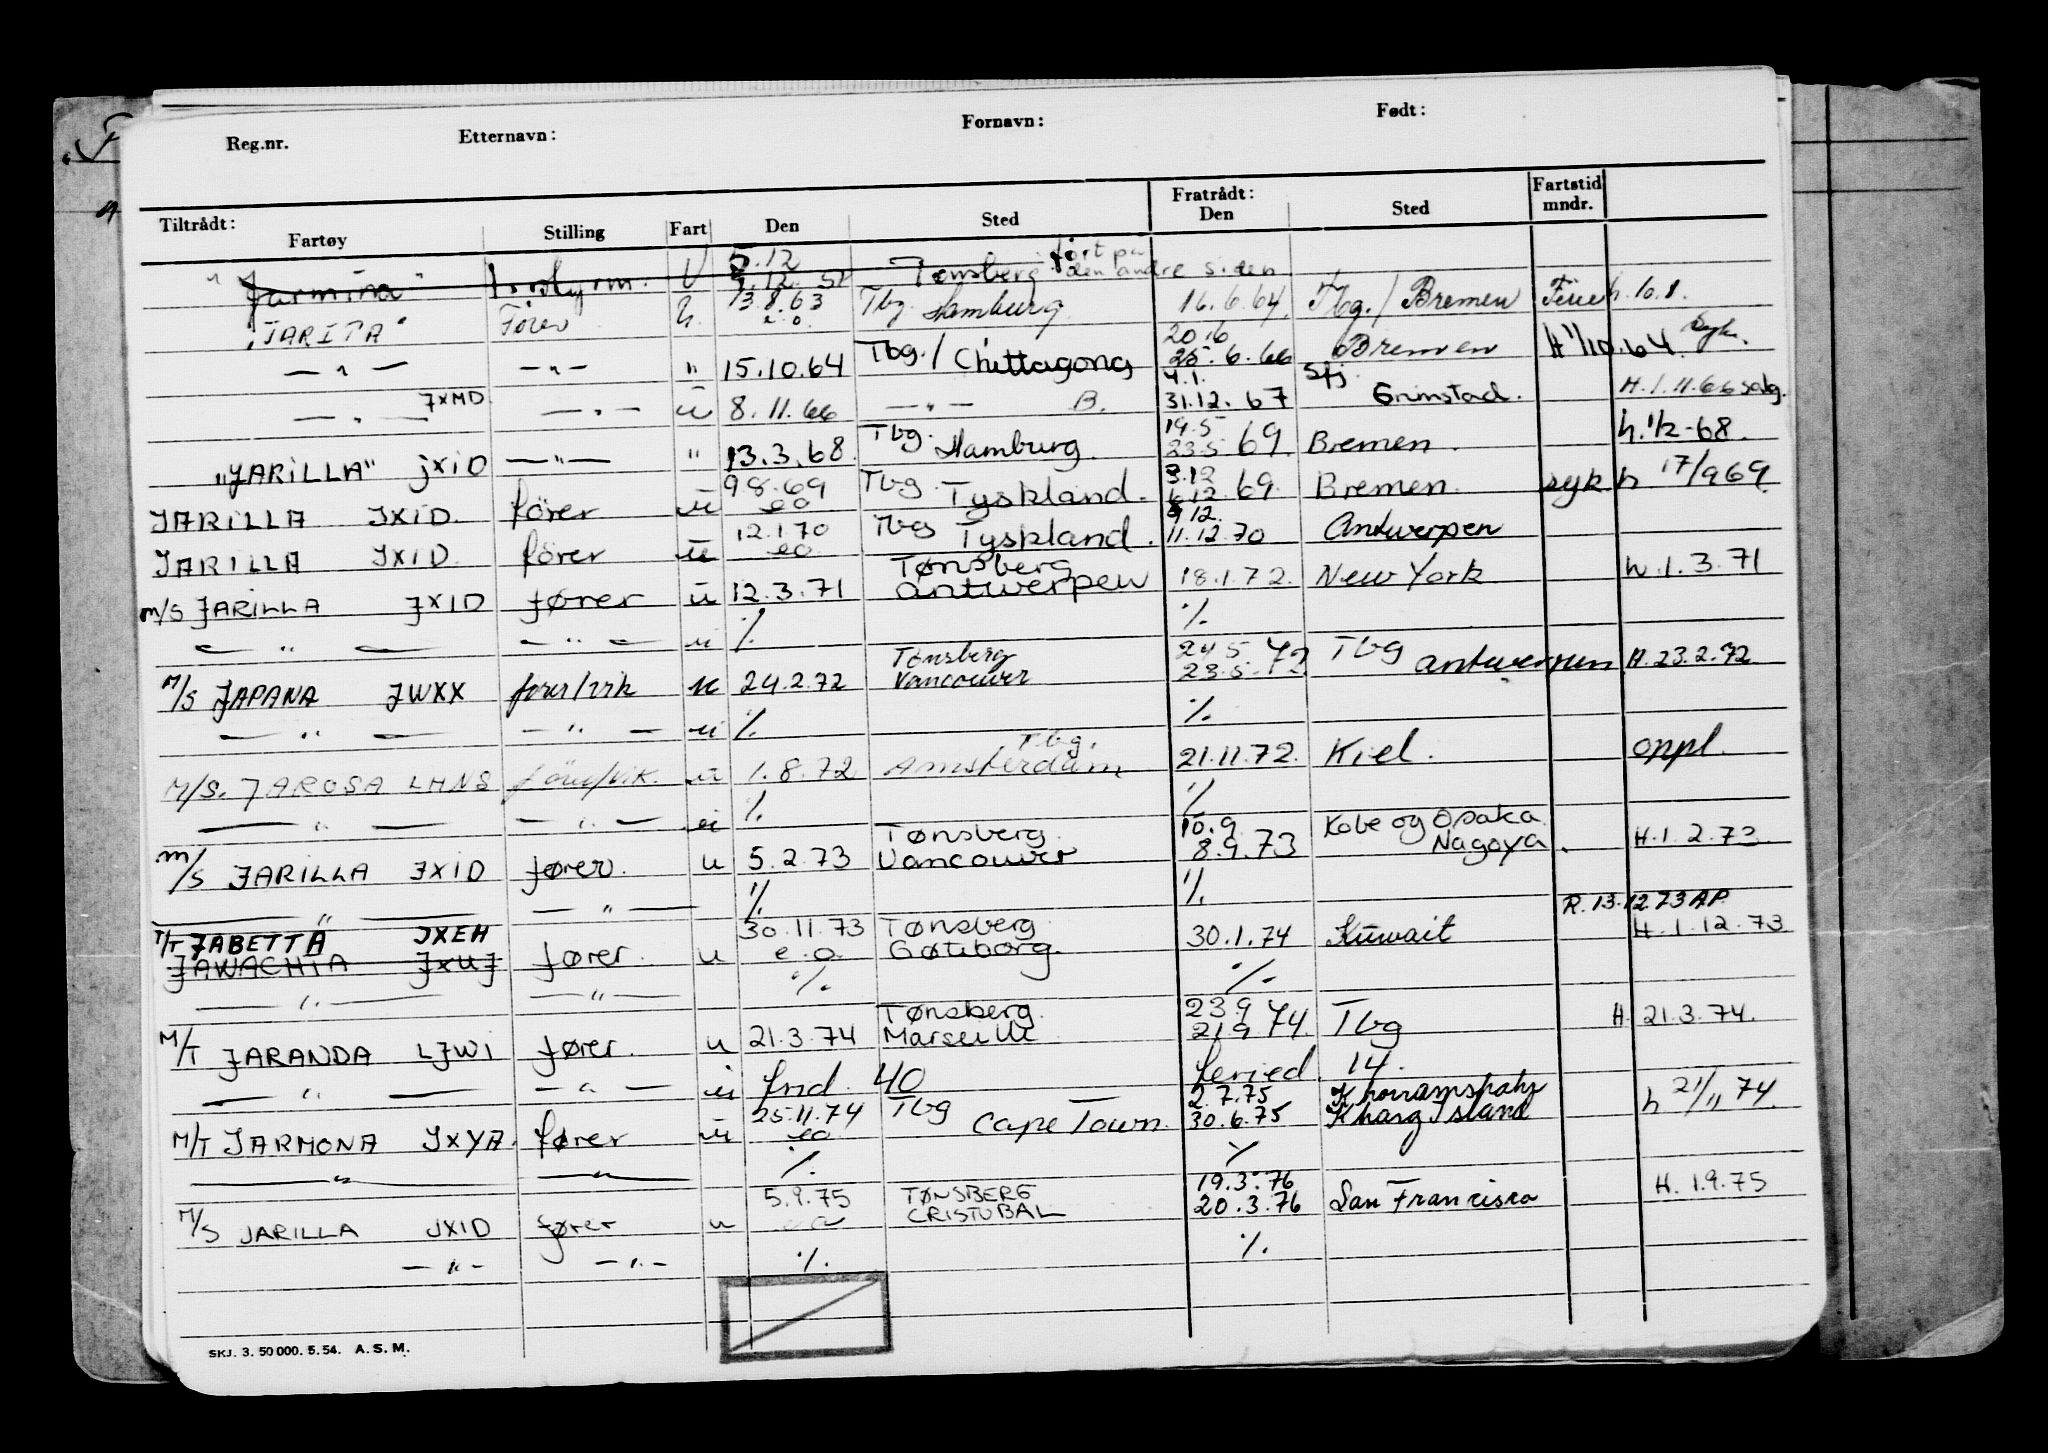 Reg.nr. Etternavn: Fornavn: Født:
Tiltrådt: Fratrådt: Fartstid
Fartøy Stilling Fart Den Sted Den Sted mndr.
5.12 ført på
"Jarmina" U 1.12. Tønsberg den andre siden
"JARITA" Fører 13.8.63 e.o. Tbg. Hamburg 16.6.64 Tbg./ Bremen Ferie h. 10.8.
20.6
— " — — " — " 15.10.64 Tbg./ Chittagong 25.6.66 Bremen H 1/10.64. Syk.
JXMD 4.1. Sfj.
— " — — " — u 8.11.66 — " — B. 31.12.67 Grimstad. H.1.11.66 salg.
19.5
"JARILLA" JXID — " — " 13.3.68. Tbg. Hamburg. 23.5 69 Bremen. h. 1/2-68.
9.8.69 3.12
JARILLA JXID. fører u eo Tbg. Tyskland. 6.12 69. Bremen. syk. h 17/9 69.
12.1.70 9.12.
JARILLA JXID. fører u eo Tbg Tyskland. 11.12.70 Antwerpen
Tønsberg
m/s JARILLA JXID fører u 12.3.71 Antwerpen 18.1.72. New York h.1.3.71
— " — — " — u ·/. ·/.
Tønsberg 24.5
M/S JAPANA JWXX fører/vik u 24.2.72 Vancouver 23.5.72 Tbg Antwerpen H.23.2.72
— " — — " — u ·/. ·/.
Tbg.
M/S. JAROSA LMNS fører/vik. u 1.8.72 Amsterdam 21.11.72. Kiel. oppl.
— " — — " — u ·/. ·/.
Tønsberg. 10.9 Kobe og Osaka
m/s JARILLA JXID fører. u 5.2.73 Vancouver 8.9.73 Nagoya. H.1.2.73
— " — — " — ·/. ·/.
R.13.12.73 AP.
T/T JABETTA JXEH 30.11.73 Tønsberg
JAWACHTA JXUJ fører. u e.o. Gøteborg. 30.1.74 Kuwait H.1.12.73
— " — — " — ·/. ·/.
Tønsberg. 23.9
M/T JARANDA LJWI fører. u 21.3.74 Marseille 21.9 74. Tbg H. 21.3.74.
— " — — " — u frid. 40 feried. 14.
25.11.74 2.7.75 Khorramshahr
M/T JARMONA JXYA. fører u eo Tbg Cape Town. 30.6.75 Kharg Island h 21/11 74.
— " — — " — ·/. ·/.
5.9.75 TØNSBERG 19.3.76
M/S JARILLA JXID fører u eo CRISTOBAL 20.3.76 San Francisco H. 1.9.75
— " — — " — ·/. ·/.
SKJ. 3. 50 000. 5. 54. A. S. M.